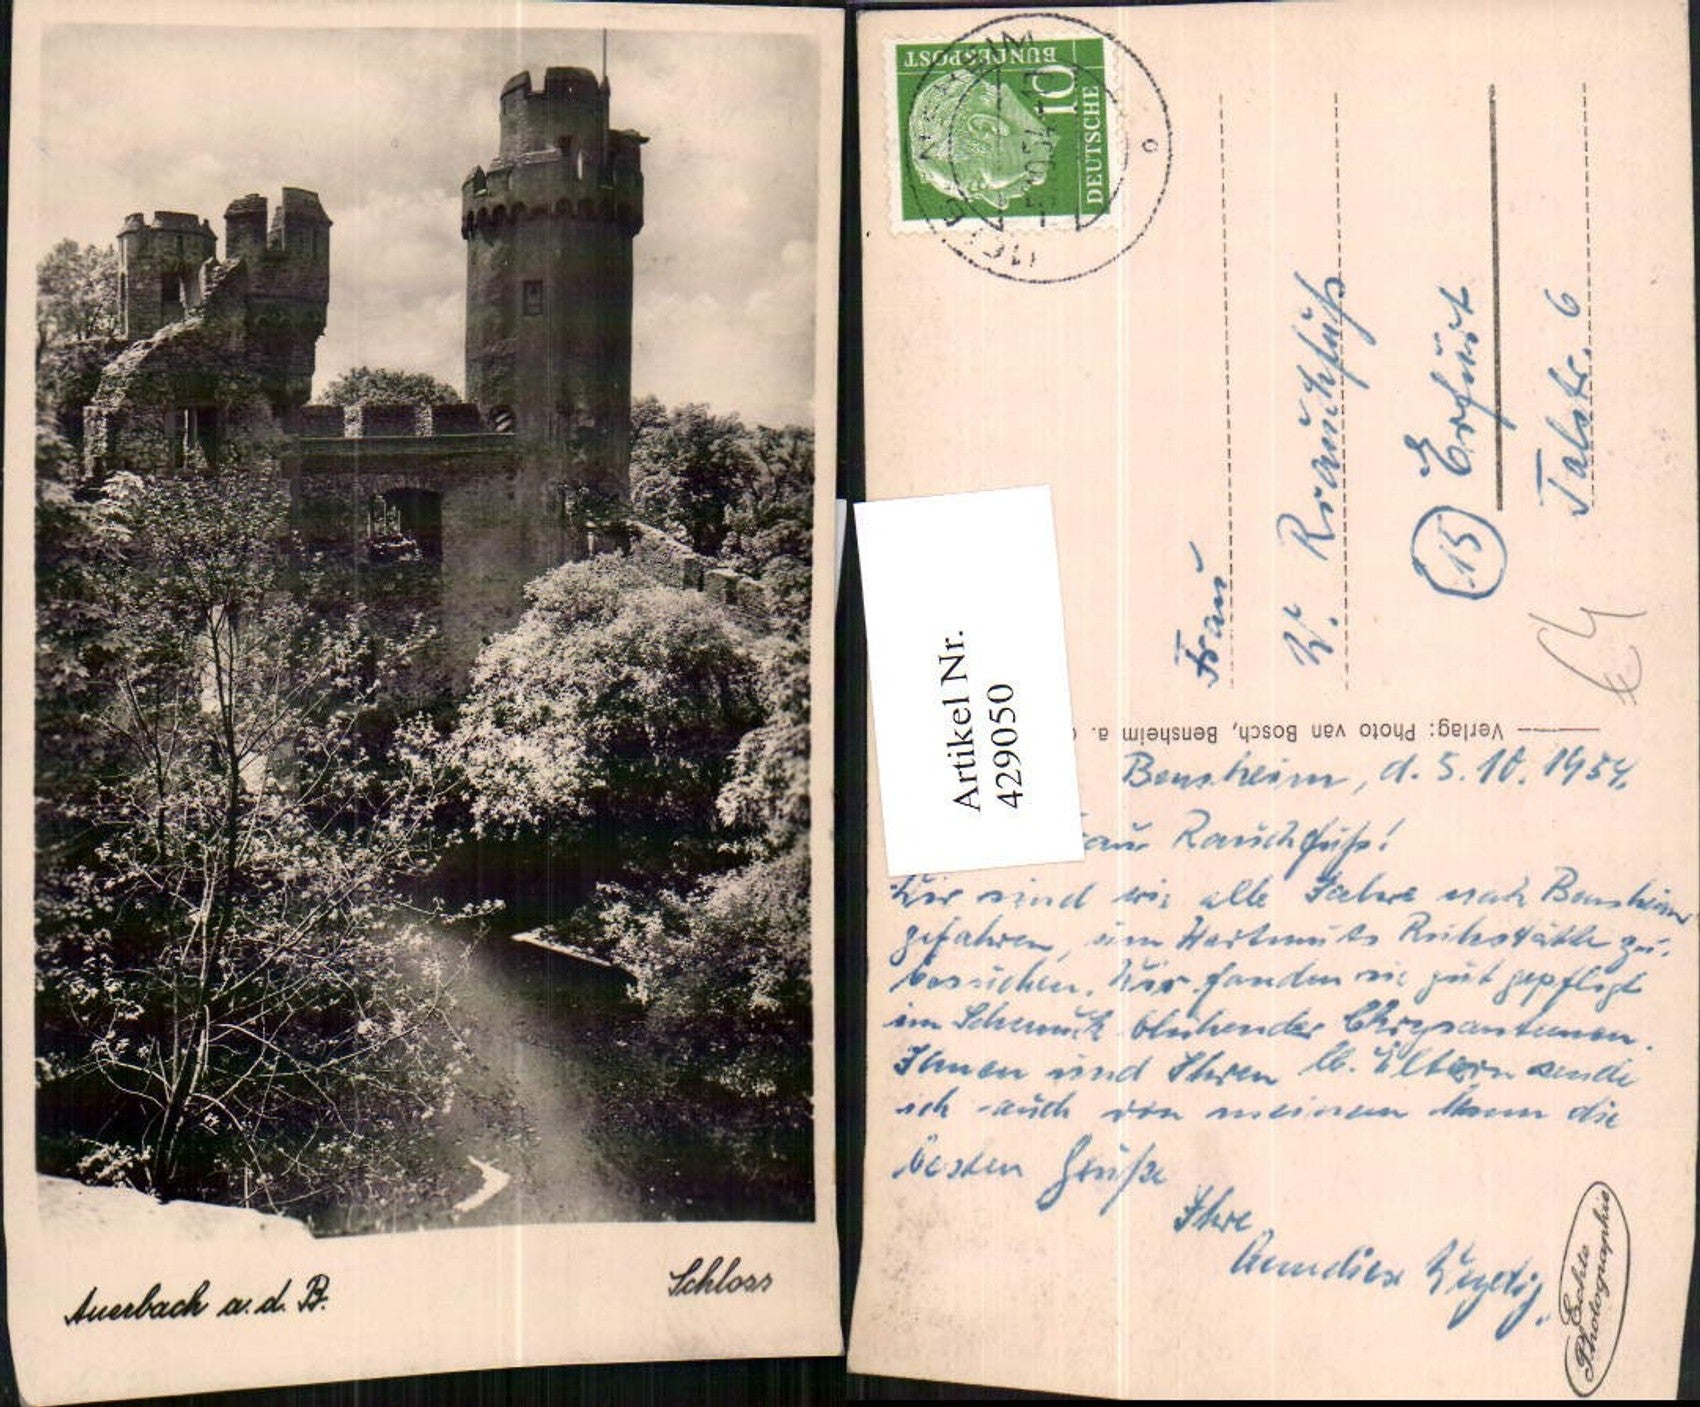 Auerbach a. d. B.
Schloss
DEUTSCHE
BUNDESPOST
10
Artikel Nr.
429050
Verlag: Photo van Bosch, Bensheim a.
Frau
W. Rauchfuß
(15) Erfurt
Talstr. 6
Bensheim, d. 5.10.1954.
Rauchfuß!
Wir sind wie alle Jahre nach Bensheim
gefahren, um Hartmuts Ruhestätte zu
besuchen. Wir fanden sie gut gepflegt
im Schmuck blühender Chrysantemen.
Ihnen und Ihren lb. Eltern sende
ich auch von meinem Mann die
besten Grüße
Ihre
Echte
Photographie